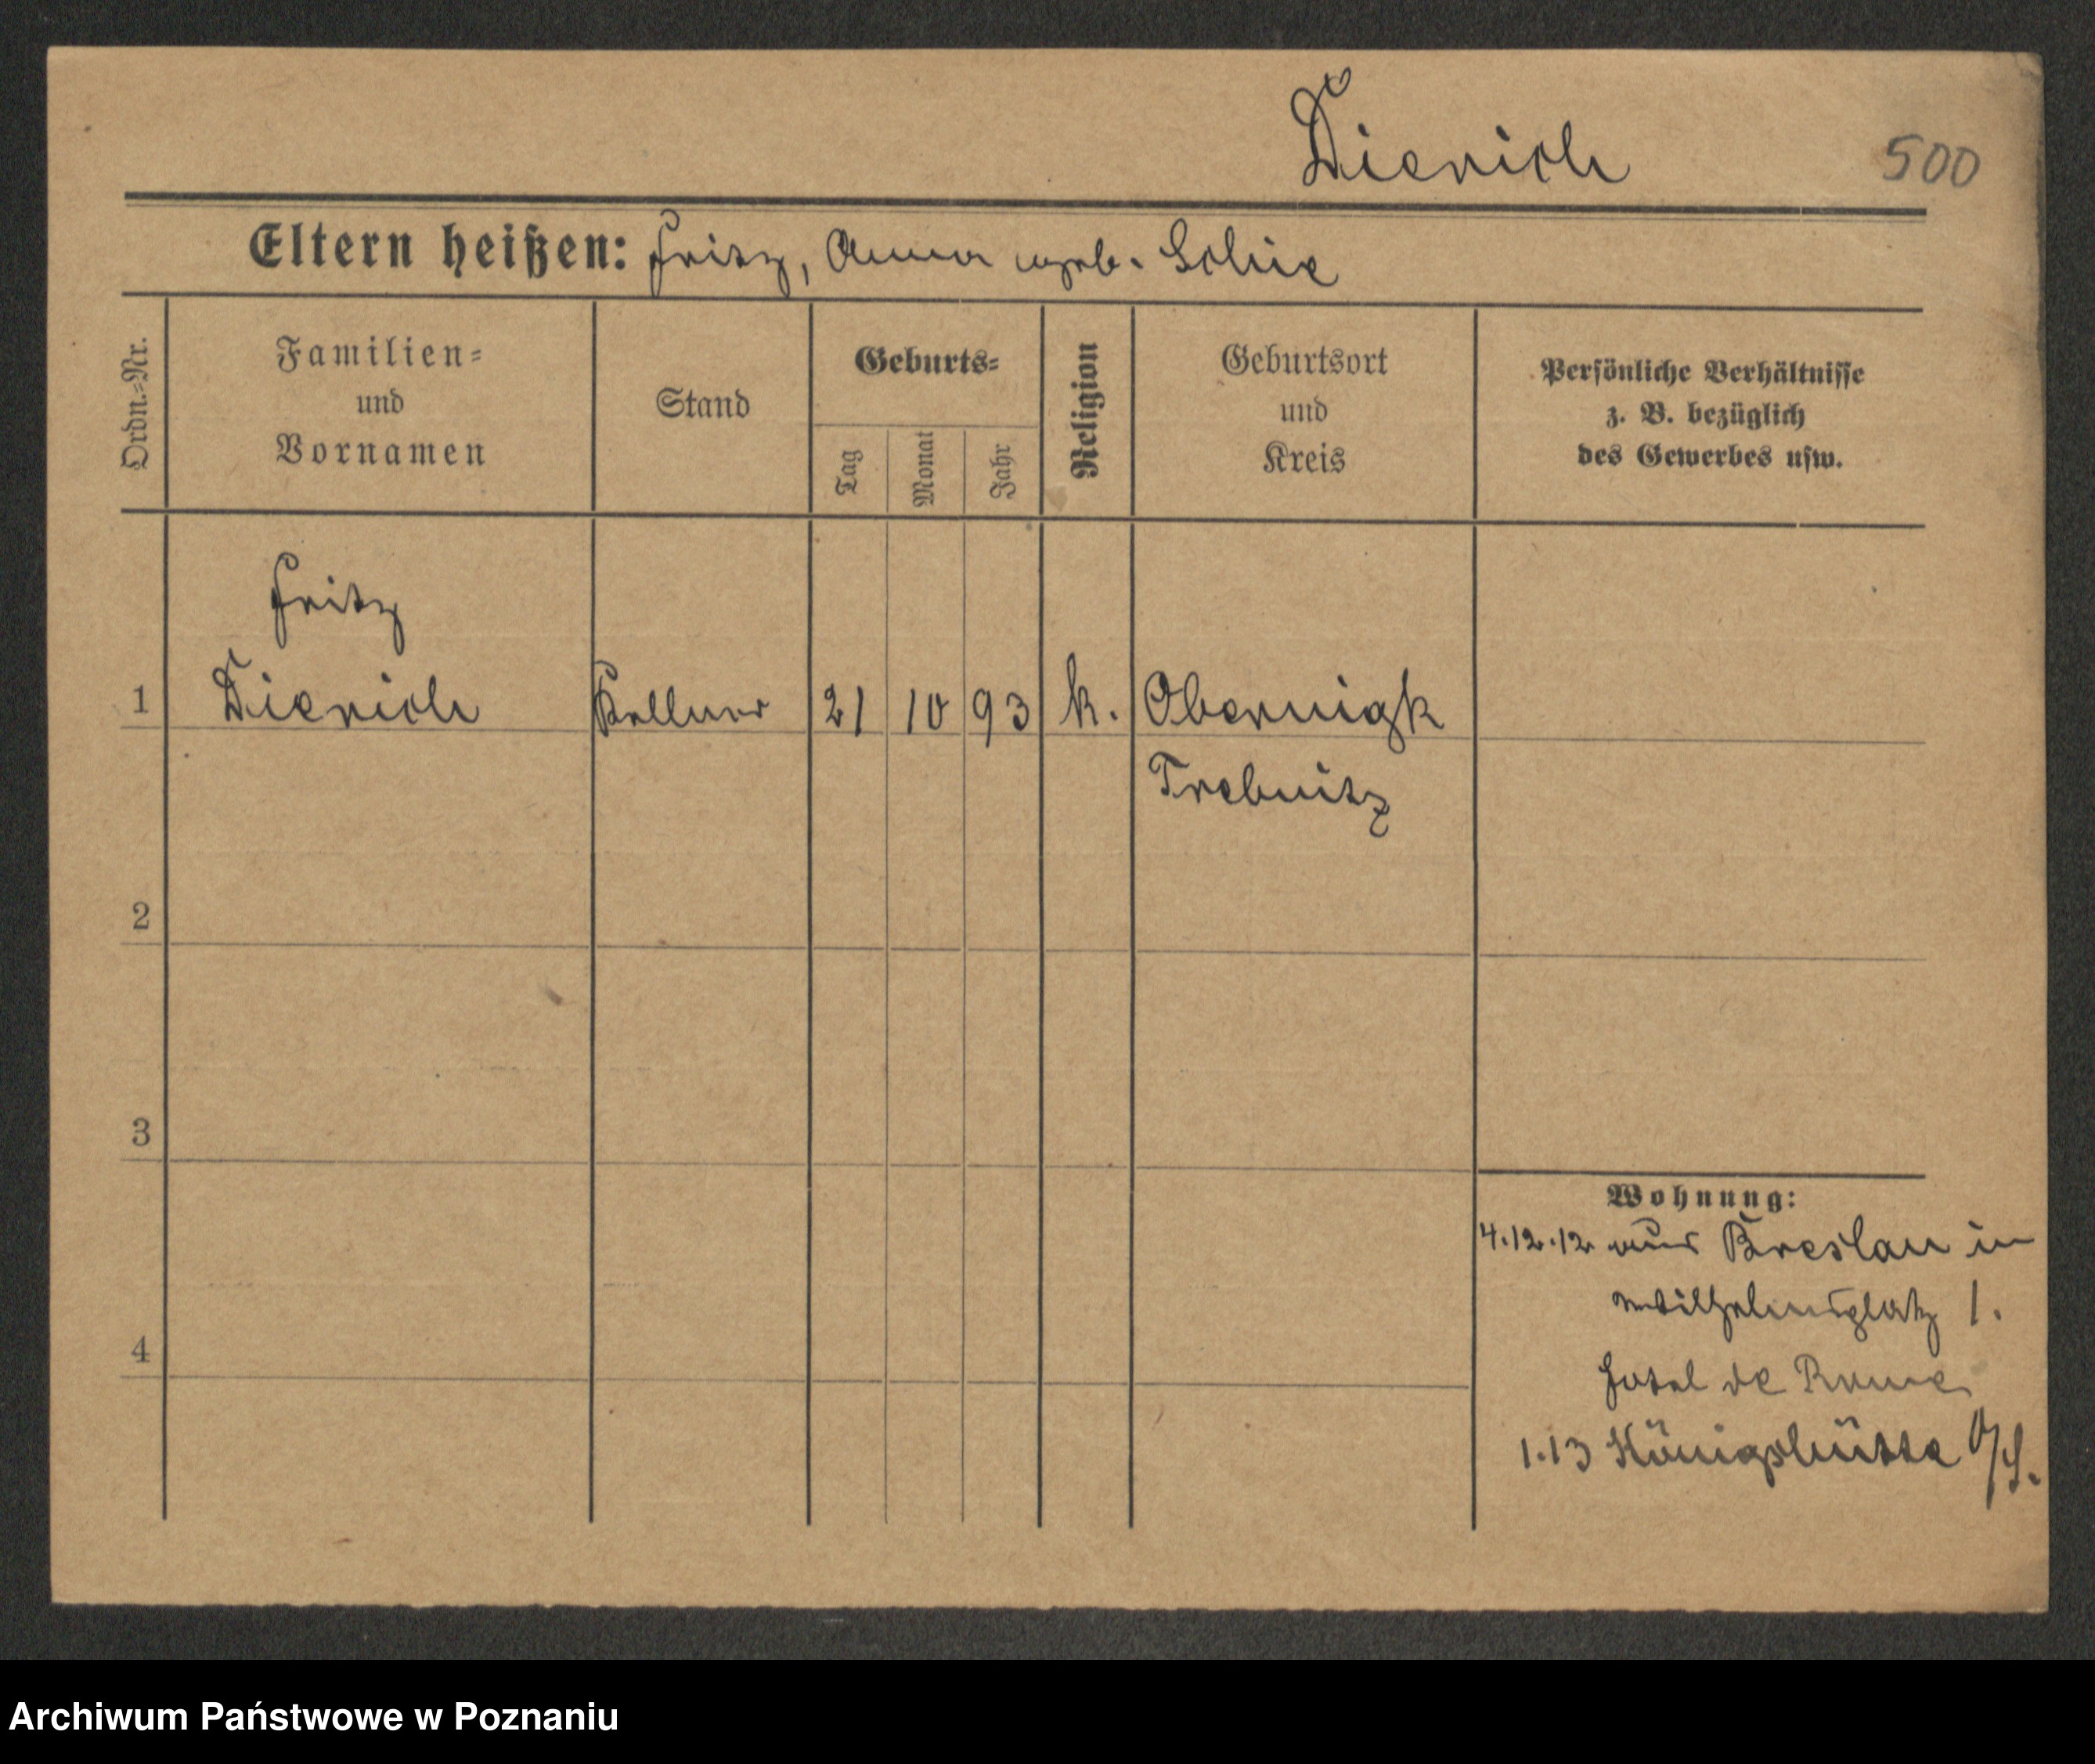 Dierich
500
Eltern heißen: Fritz, Anna geb. Schie
Ordn.=Nr.
Familien=
und
Vornamen
Stand
Geburts=
Tag
Monat
Jahr
Religion
Geburtsort
und
Kreis
Persönliche Verhältnisse
z. B. bezüglich
des Gewerbes usw.
Fritz
1 Dierich Kellner 21 10 93 k. Obernigk
Trebnitz
2
3
4
Wohnung:
4.12.12 aus Breslau in
Wilhelmsplatz 1.
Hotel de Rome
1.13 Königshütte O/S.
Archiwum Państwowe w Poznaniu